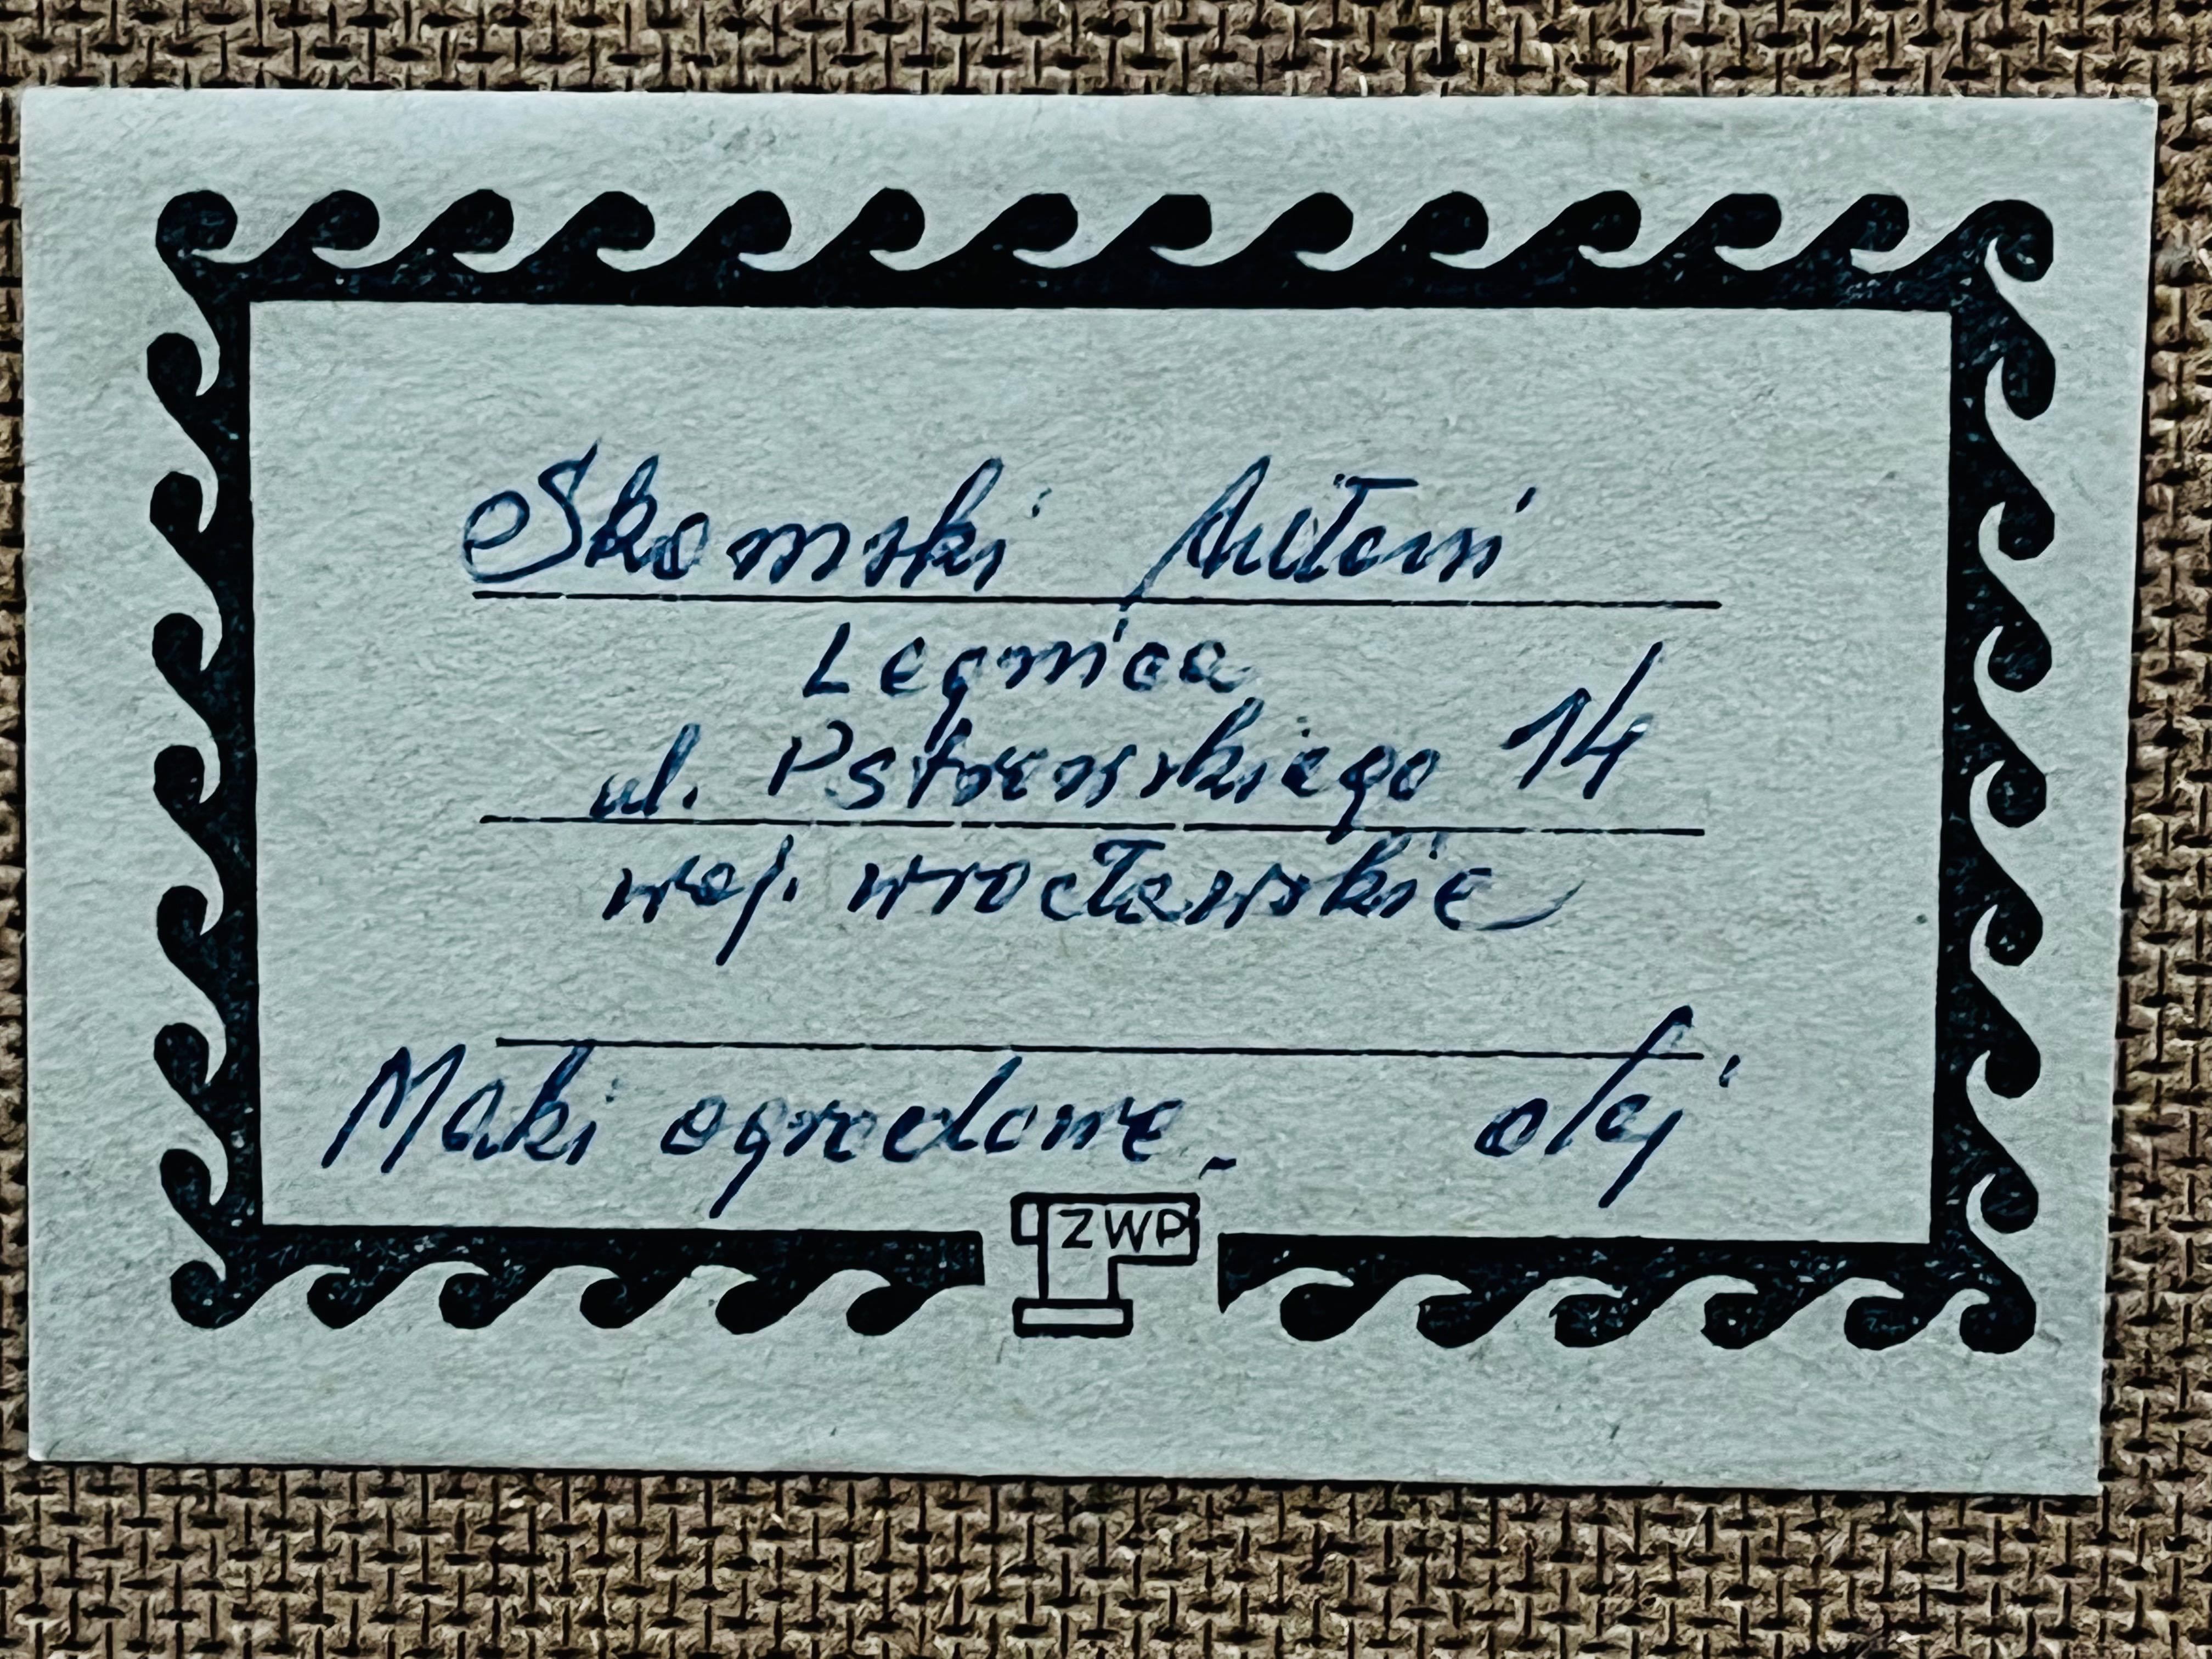 Skomski Antoni
Legnica
ul. Pstrowskiego 14
woj. wrocławskie
Maki ogrodowe. olej
ZWP